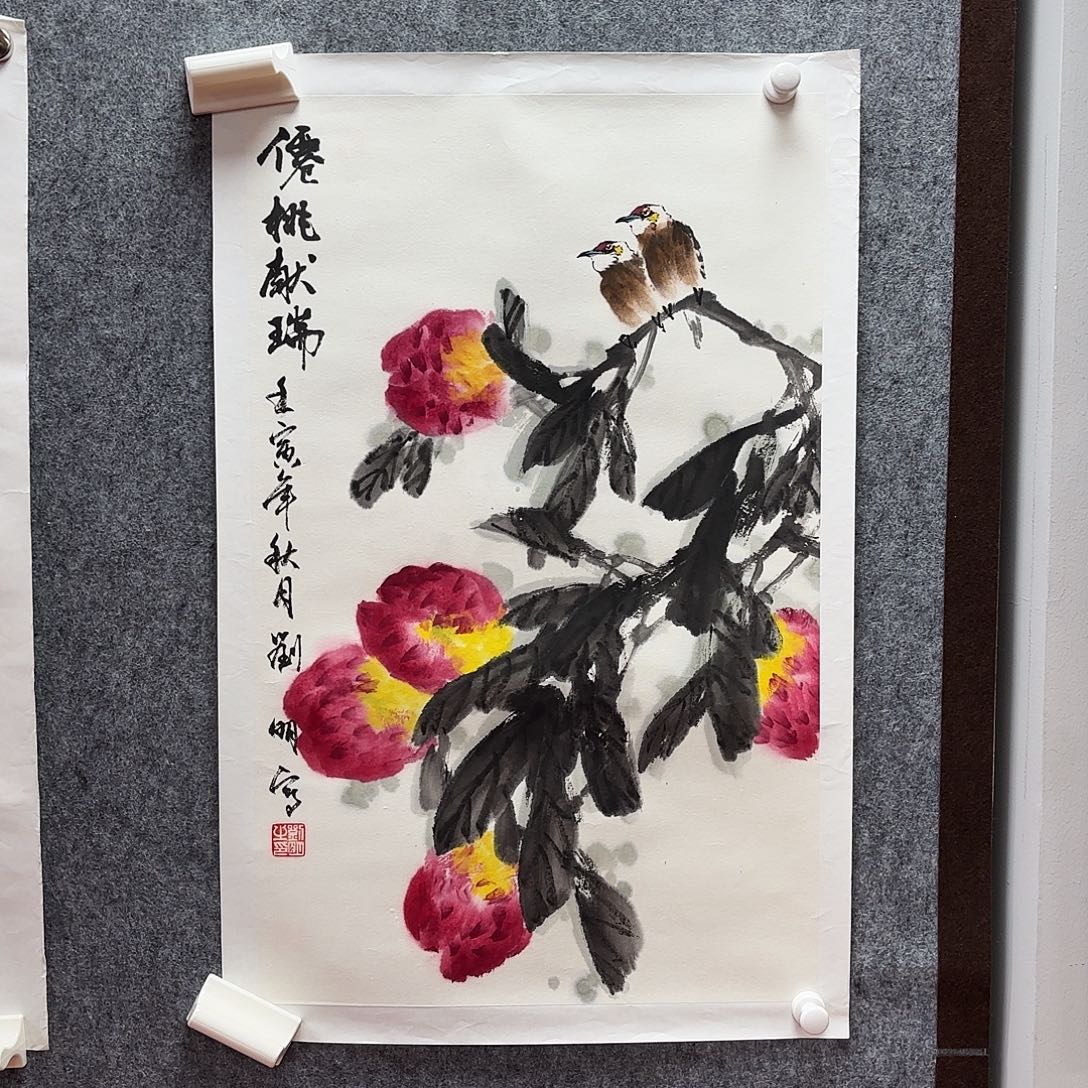 僊桃献瑞
壬寅年秋月劉明寫
劉明之印